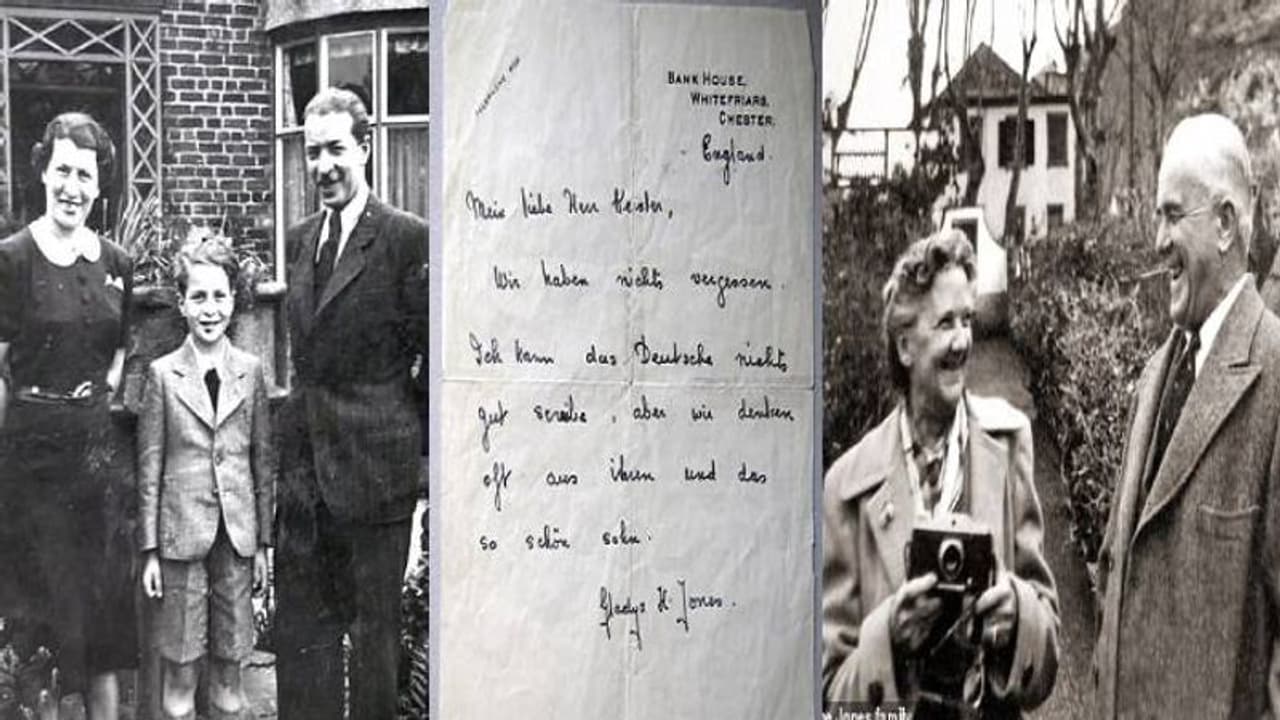 TELEPHONE
BANK HOUSE,
WHITEFRIARS,
CHESTER,
England.
Mein liebe Herr
Wir haben nichts vergessen.
Ich kann das Deutsche nichts
gut screibe, aber wir denken
oft aus ihren und das
so schön sohn.
Gladys H. Jones.
Jones family